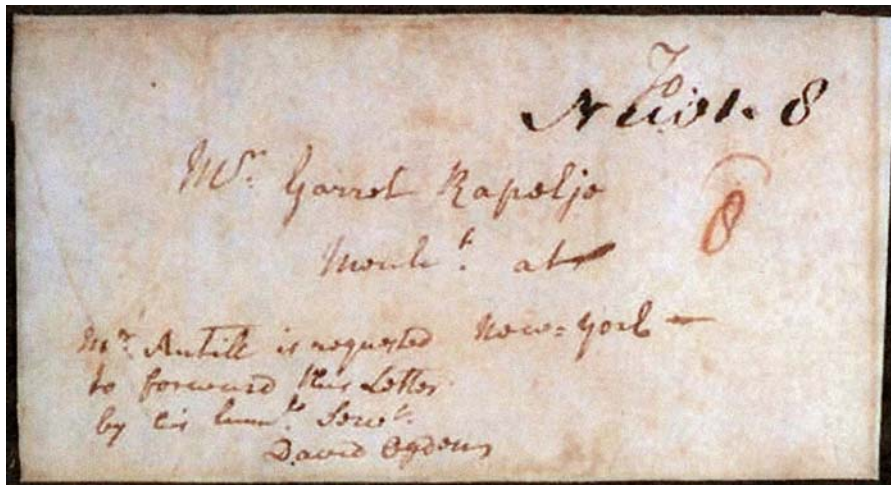 8
Mr. Garret Rapelje
8
Merch.t at
New=York
Mr. Antill is requested
to forward this Letter
by his hum.le Serv.t
David Ogden